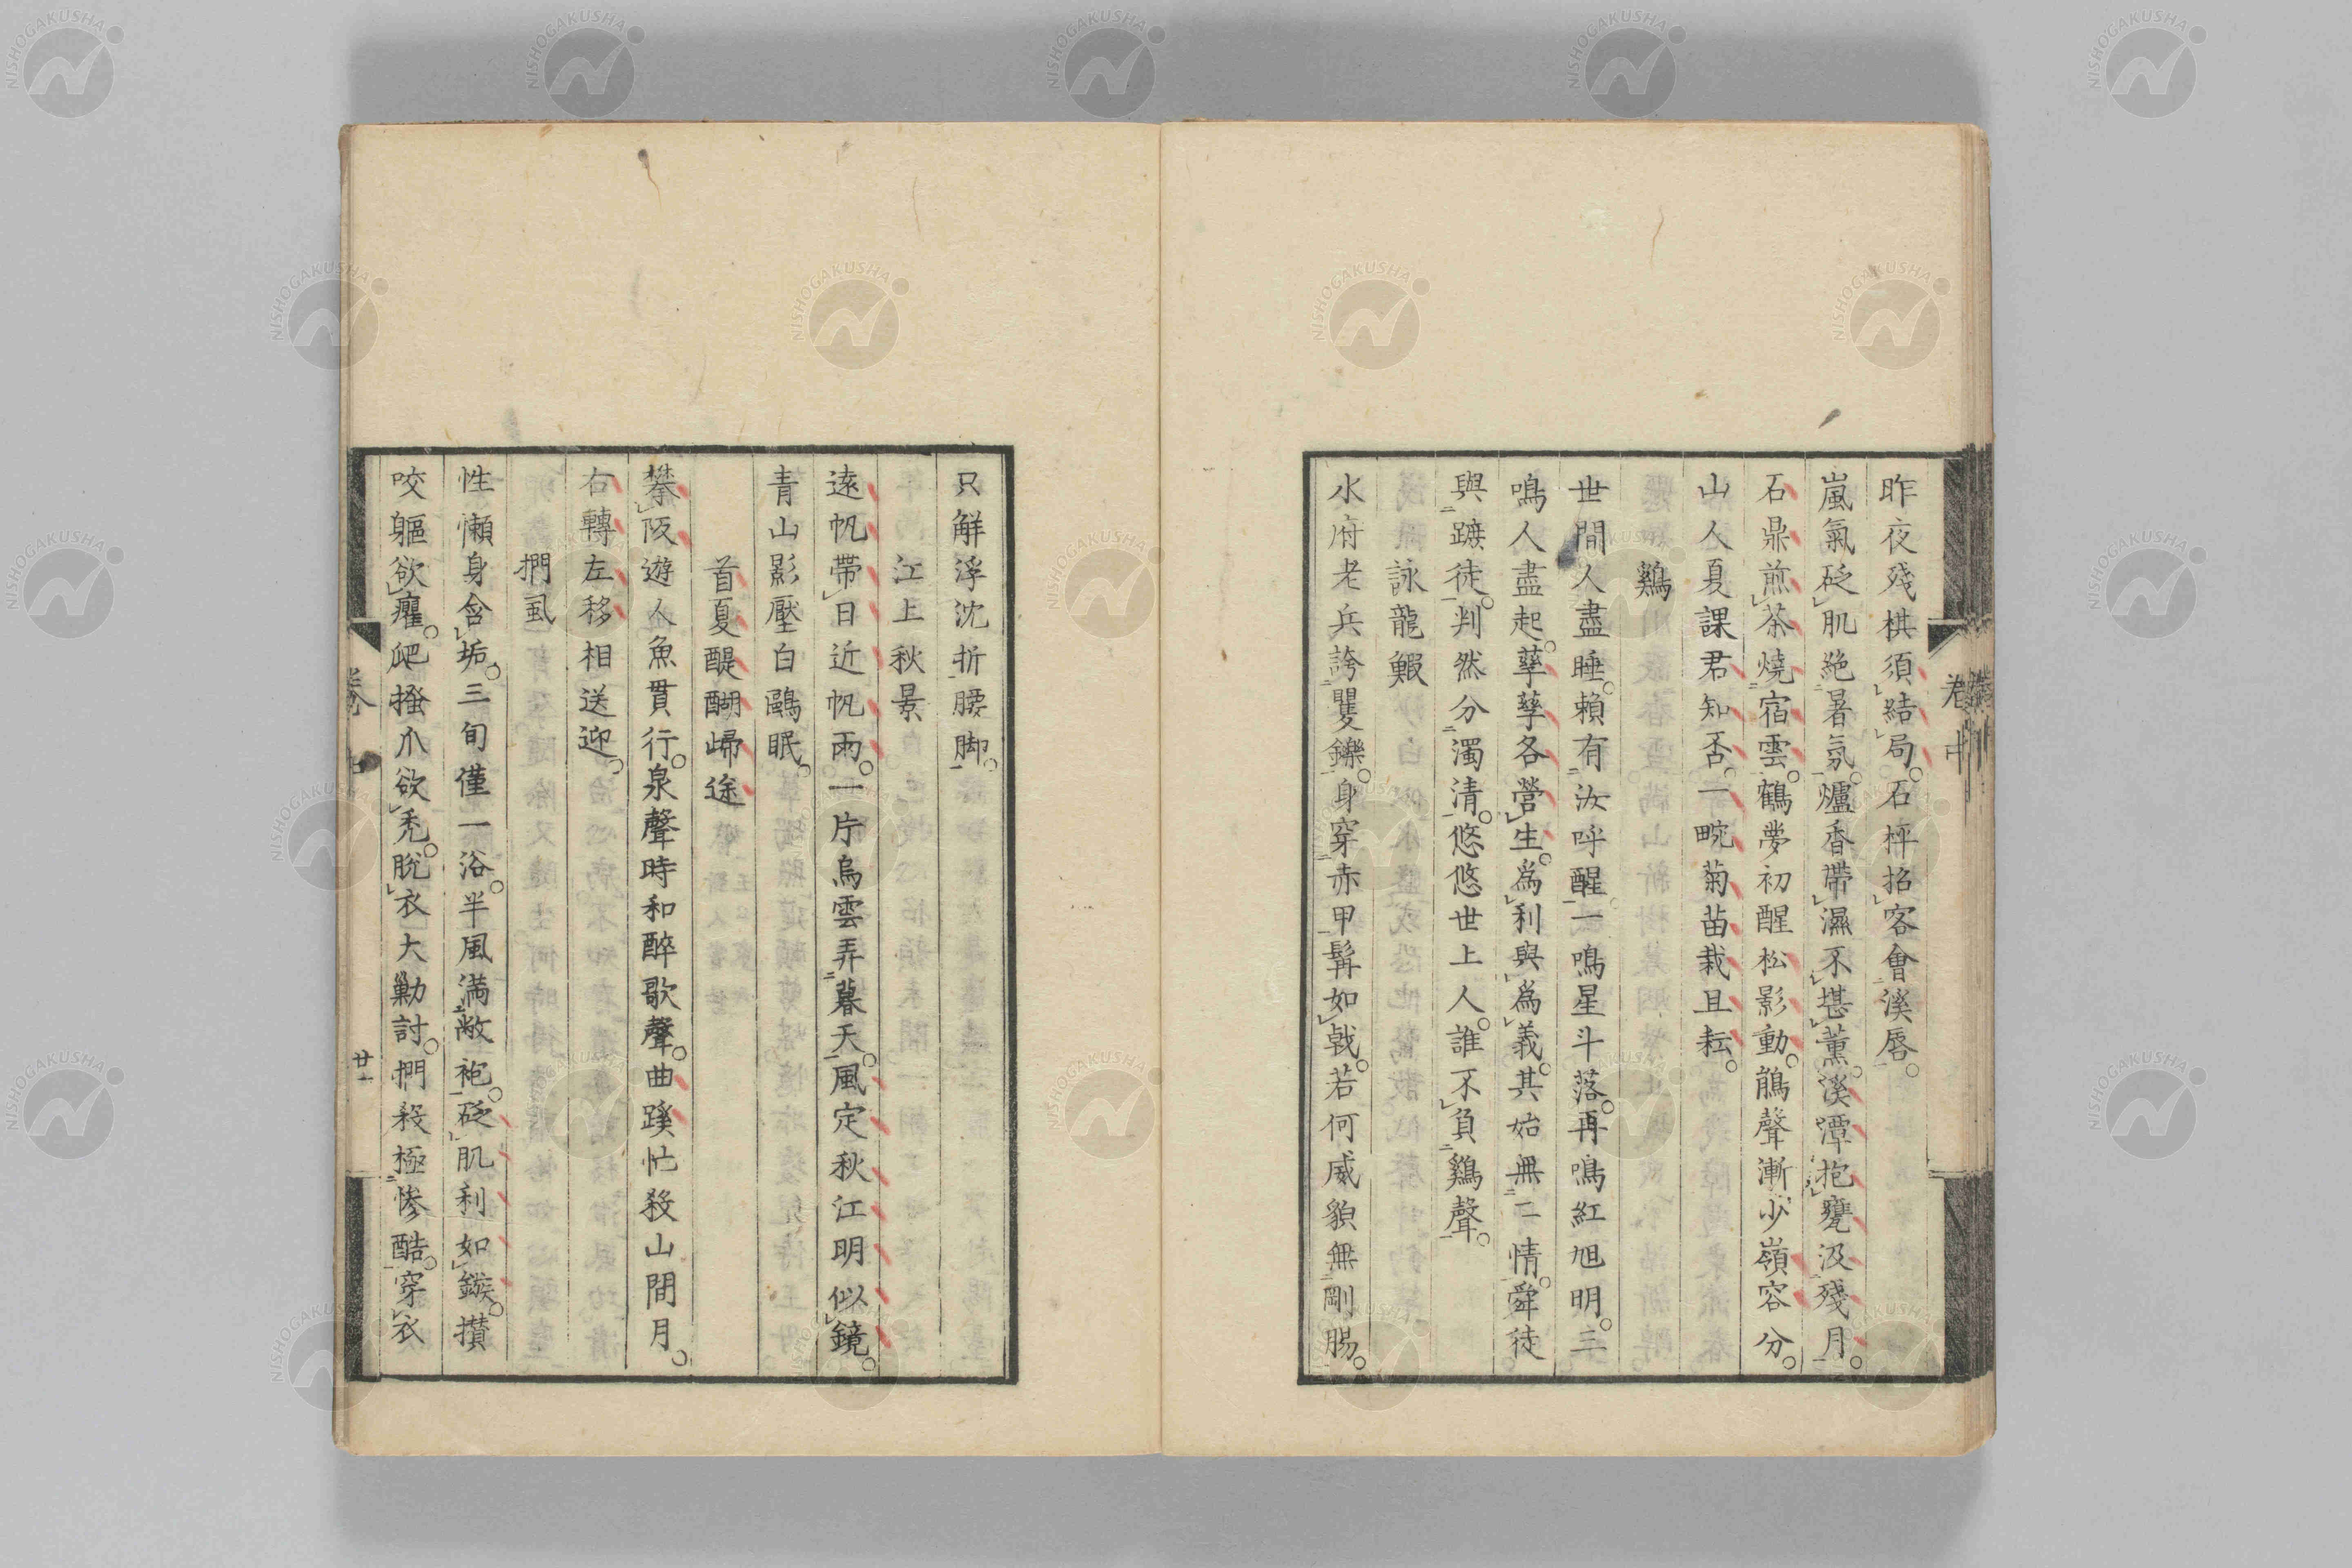 昨夜殘棋須結局。石枰招客會溪唇。
嵐氣砭肌絕暑氛。爐香帶濕不堪薰。溪潭抱甕汲殘月。
石鼎煎茶燒宿雲。鶴夢初醒松影動。鵑聲漸少嶺容分。
山人夏課君知否。一畹菊苗栽且耘。
鷄
世間人盡睡。賴有汝呼醒。一鳴星斗落。再鳴紅旭明。三
鳴人盡起。孳孳各營生。為利與為義。其始無二情。舜徒
與蹠徒。判然分濁清。悠悠世上人。誰不負鷄聲。
詠龍鰕
水府老兵誇矍鑠。身穿赤甲髯如戟。若何威貌無剛腸。
卷中
只解浮沈折腰脚。
江上秋景
遠帆帶日近帆雨。一片烏雲弄暮天。風定秋江明似鏡。
青山影壓白鷗眠。
首夏醍醐歸途
攀阪遊人魚貫行。泉聲時和醉歌聲。曲蹊忙殺山間月。
右轉左移相送迎。
捫虱
性懶身含垢。三旬僅一浴。半風滿敝袍。砭肌利如鏃。攢
咬軀欲癯。爬搔爪欲禿。脫衣大勦討。捫殺極慘酷。穿衣
廿一
NISHOGAKUSHA